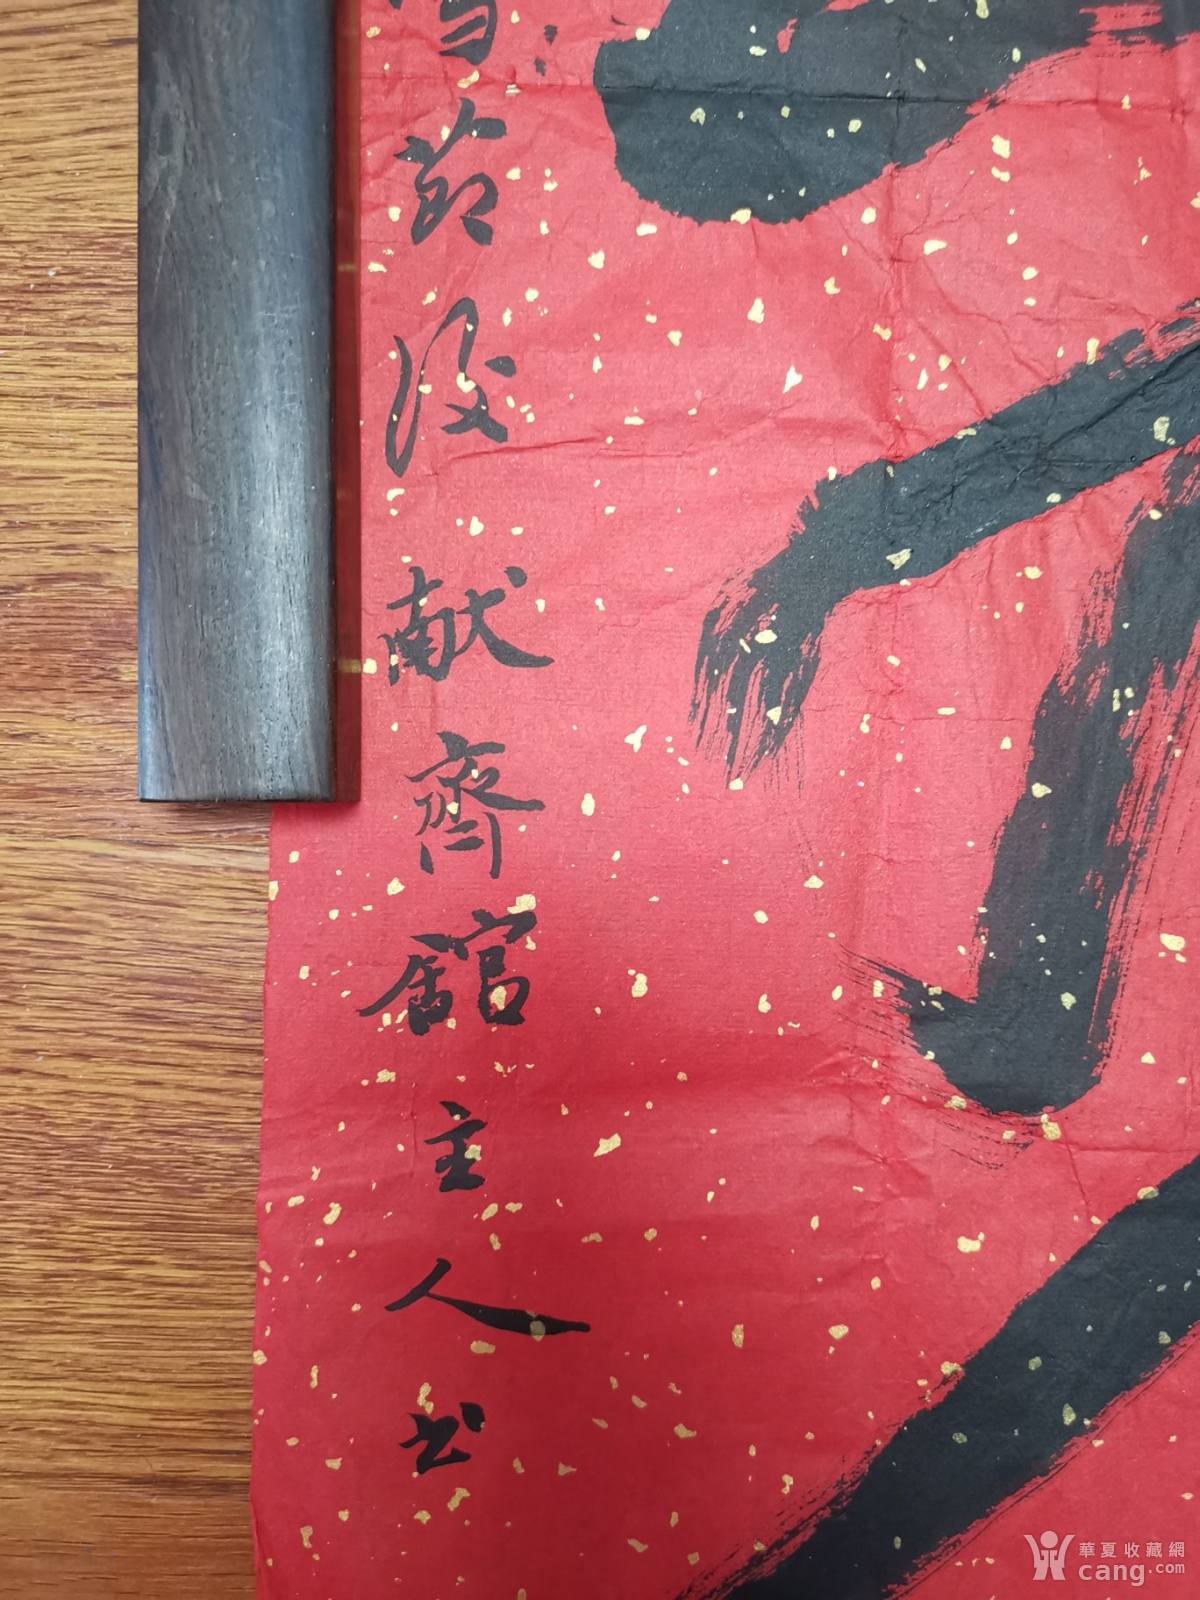 雪節後献齋舘主人书
華夏收藏網
cang.com